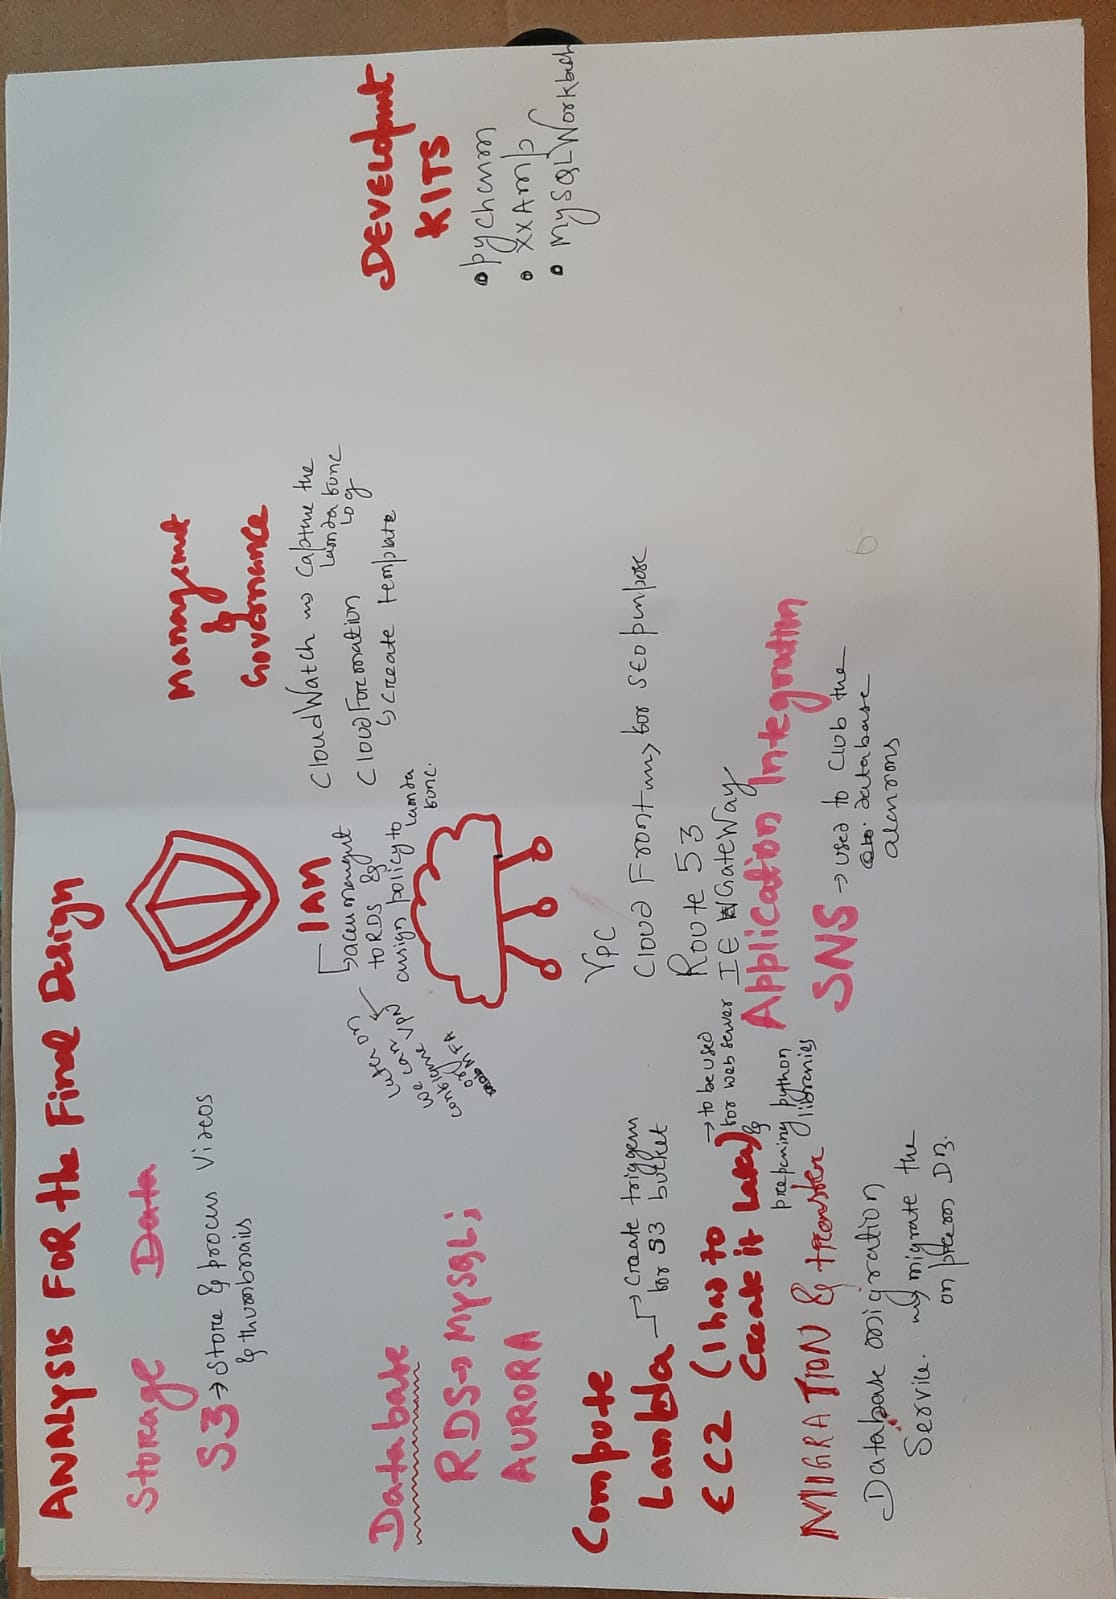 ANALYSIS FOR the Final Design
Storage Data
S3 → Store & process Videos
& thumbnails
Database
RDS → MySQL;
AURORA
Compute
Lambda → Create triggers
for S3 bucket
EC2 (I have to
Create it Later)
→ to be used
for web server
&
preparing python
libraries
MIGRATION & transfer
Database migration
Service. migrate the
on prem DB.
IAM
→ access managment
to RDS &
assign policy to
lamda
func.
Later on
we can
configure VPN
and MFA
VPC
Cloud Front → for SEO purpose
Route 53
IE GateWay
Application Integration
SNS → used to club the
database
alarms
Managemnt
&
Governance
CloudWatch → Capture the
lamda func
Log
CloudFormation
↳ Create template
DEVELOPmnt
KITS
• pycharm
• XXAmp
• MySQL Workbech